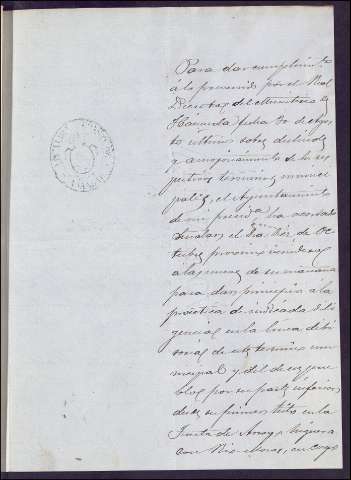 Para dar cumplimiento
á lo prevenido por el Real
Decreto del Ministerio de
Hacienda fecha 30 de Agos-
to ultimo sobre deslinde
y amojonamiento de los res-
pectivos terminos munici-
pales, el Ayuntamiento
de mi presida ha acordado
señalar el dia tres de Oc-
tubre proximo venidero
á las nueve de su mañana
para dar principio á la
práctica de indicada dili-
gencia en la linea divi-
soria de este termino mu-
nicipal y del de ese pue-
blo, por su parte inferior
desde su primer hito en la
Junta de Arroyo
con Rio en cuyo